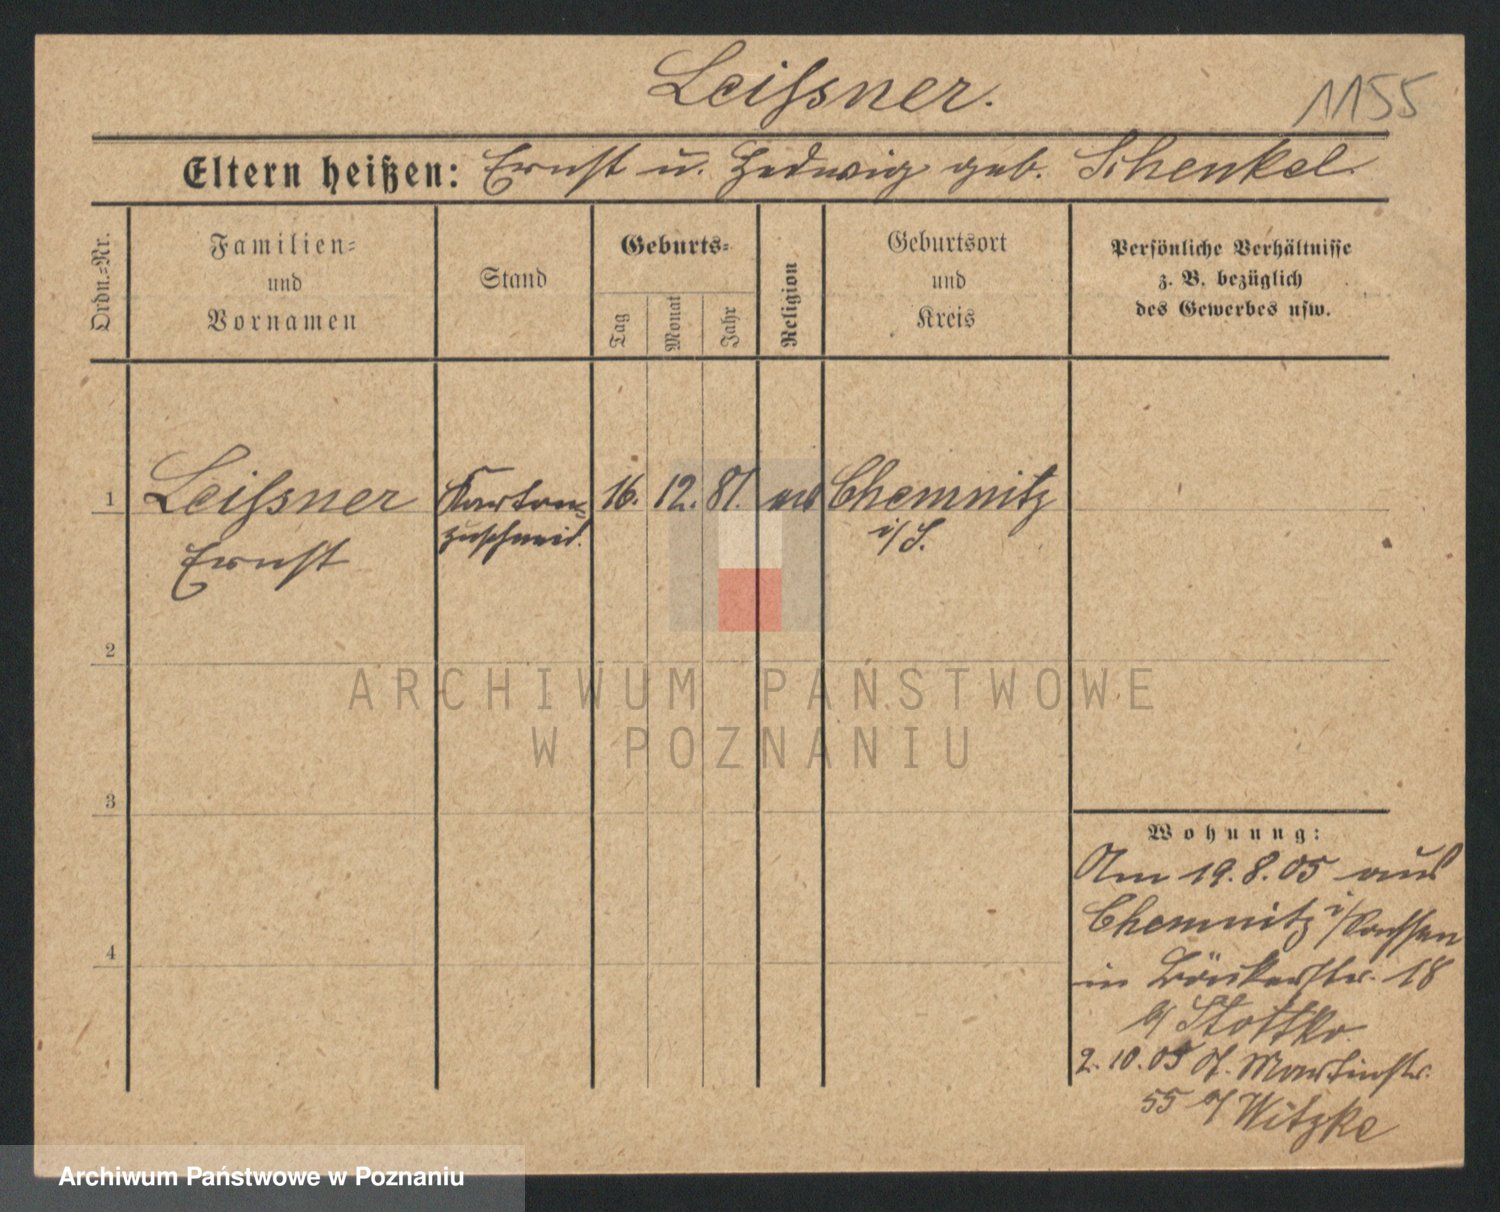 Leißner.
1155
Eltern heißen: Ernst u. Hedwig geb. Schenkel
Ordn.-Nr.
Familien-
und
Vornamen
Stand
Geburts-
Tag
Monat
Jahr
Religion
Geburtsort
und
Kreis
Persönliche Verhältnisse
z. B. bezüglich
des Gewerbes usw.
1 Leißner Karton- 16. 12. 81. Chemnitz
Ernst zuschneid. i/S.
2
3
4
Wohnung:
Am 19.8.05 aus
Chemnitz i/Sachsen
in Bäckerstr. 18
b/
2.10.05 St. Martinstr.
55 b/ Witzke
ARCHIWUM PAŃSTWOWE
W POZNANIU
Archiwum Państwowe w Poznaniu